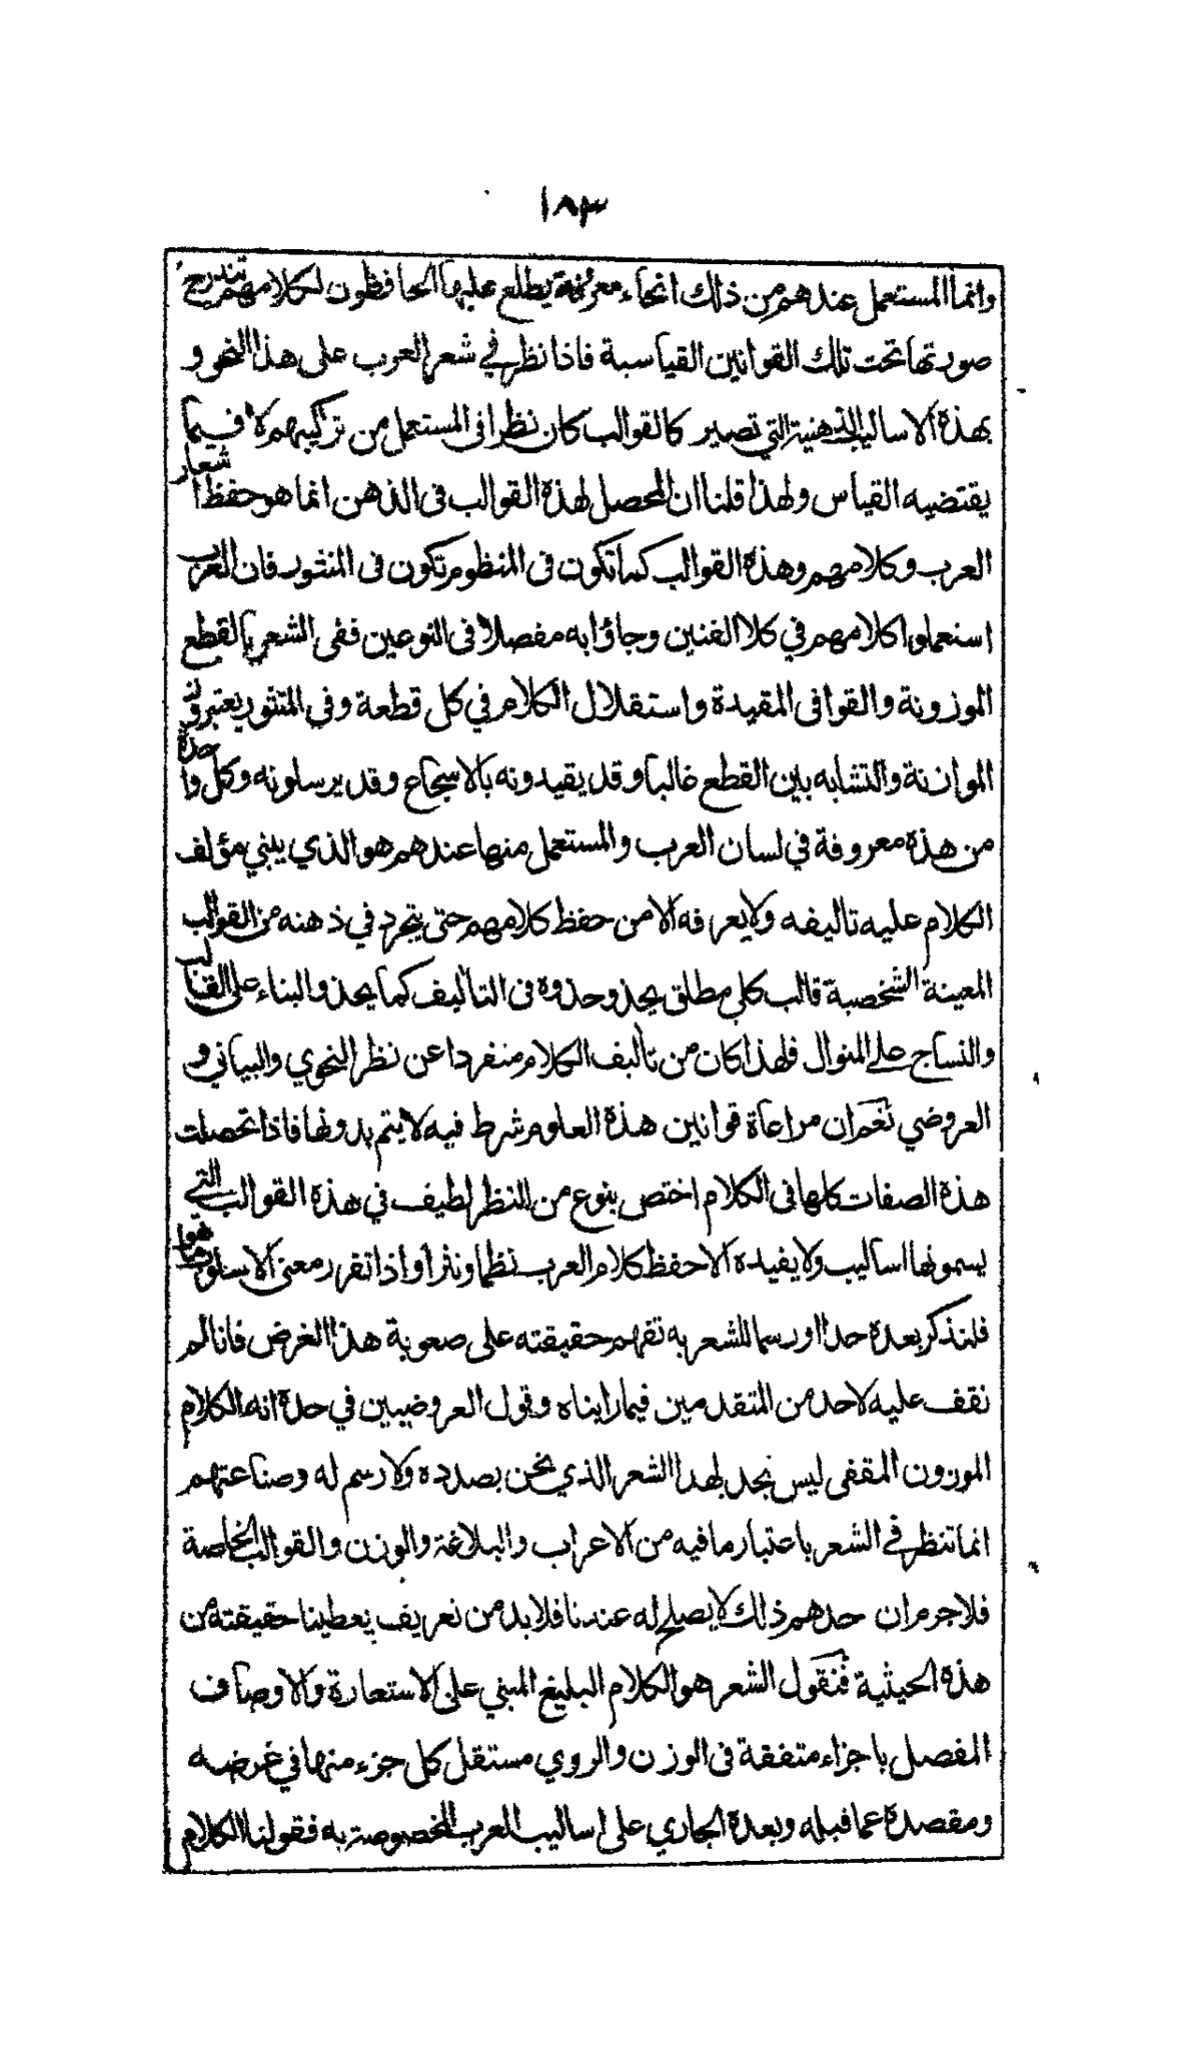 ١٨٣
وانما المستعمل عندهم من ذلك انحاء معروفة يطلع عليها الحافظون لكلامهم تندرج
صورتها تحت تلك القوانين القياسية فاذا نظر في شعر العرب على هذا النحو و
بهذه الاساليب الذهنية التي تصير كالقوالب كان نظرا في المستعمل من تركيبهم لا فيما
يقتضيه القياس ولهذا قلنا ان المحصل لهذة القوالب فى الذهن انما هو حفظ اشعار
العرب وكلامهم وهذة القوالب كما تكون فى المنظوم تكون فى المنثور فان العرب
استعملوا كلامهم في كلا الفنين وجاؤا به مفصلا فى النوعين ففى الشعر بالقطع
الموزونة والقوافى المقيدة واستقلال الكلام في كل قطعة وفي المنثور يعتبرون
الموازنة والتشابه بين القطع غالبا وقد يقيدونه بالاسجاع وقد يرسلونه وكل واحدة
من هذه معروفة في لسان العرب والمستعمل منها عندهم هو الذي يبني مؤلف
الكلام عليه تاليفه ولا يعرفه الا من حفظ كلامهم حتى يتجرد في ذهنه من القوالب
المعينة الشخصية قالب كلي مطلق يحذو حذوه فى التأليف كما يحذو البناء على القالب
والنساج على المنوال فلهذا كان من تأليف الكلام منفردا عن نظر النحوي والبياني و
العروضي نعم ان مراعاة قوانين هذة العلوم شرط فيه لا يتم بدونها فاذا تحصلت
هذة الصفات كلها فى الكلام اختص بنوع من النظر لطيف في هذه القوالب التي
يسمونها اساليب ولا يفيده الا حفظ كلام العرب نظما ونثرا واذا تقرر معنى الاسلوب ما هو
فلنذكر بعدة حدا او رسما للشعر به تفهم حقيقته على صعوبة هذا الغرض فانا لم
نقف عليه لاحد من المتقدمين فيما راينا ه وقول العروضيين في حدة انه الكلام
الموزون المقفى ليس نجد لهذا الشعر الذي نحن بصدده ولا رسم له وصناعتهم
انما تنظر في الشعر باعتبار ما فيه من الاعراب والبلاغة والوزن والقوالب الخاصة
فلا جرم ان حدهم ذلك لا يصلح له عندنا فلا بد من تعريف يعطينا حقيقته من
هذة الحيثية فنقول الشعر هو الكلام البليغ المبني على الاستعارة والاوصاف
المفصل باجزاء متفقة فى الوزن والروي مستقل كل جزء منها في غرضه
ومقصدة عما قبله وبعدة الجاري على اساليب العرب المخصوصة به فقولنا الكلام